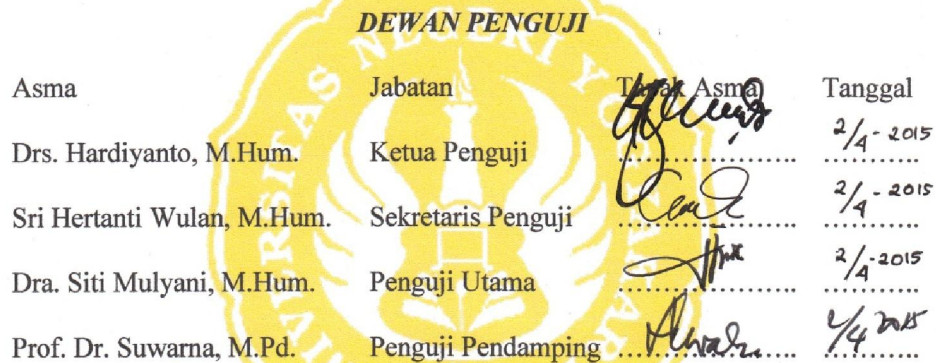 DEWAN PENGUJI
Asma Jabatan Tapak Asma Tanggal
Drs. Hardiyanto, M.Hum. Ketua Penguji .................... 2/4 - 2015
Sri Hertanti Wulan, M.Hum. Sekretaris Penguji .................... 2/4 - 2015
Dra. Siti Mulyani, M.Hum. Penguji Utama .................... 2/4 - 2015
Prof. Dr. Suwarna, M.Pd. Penguji Pendamping .................... /4 2015